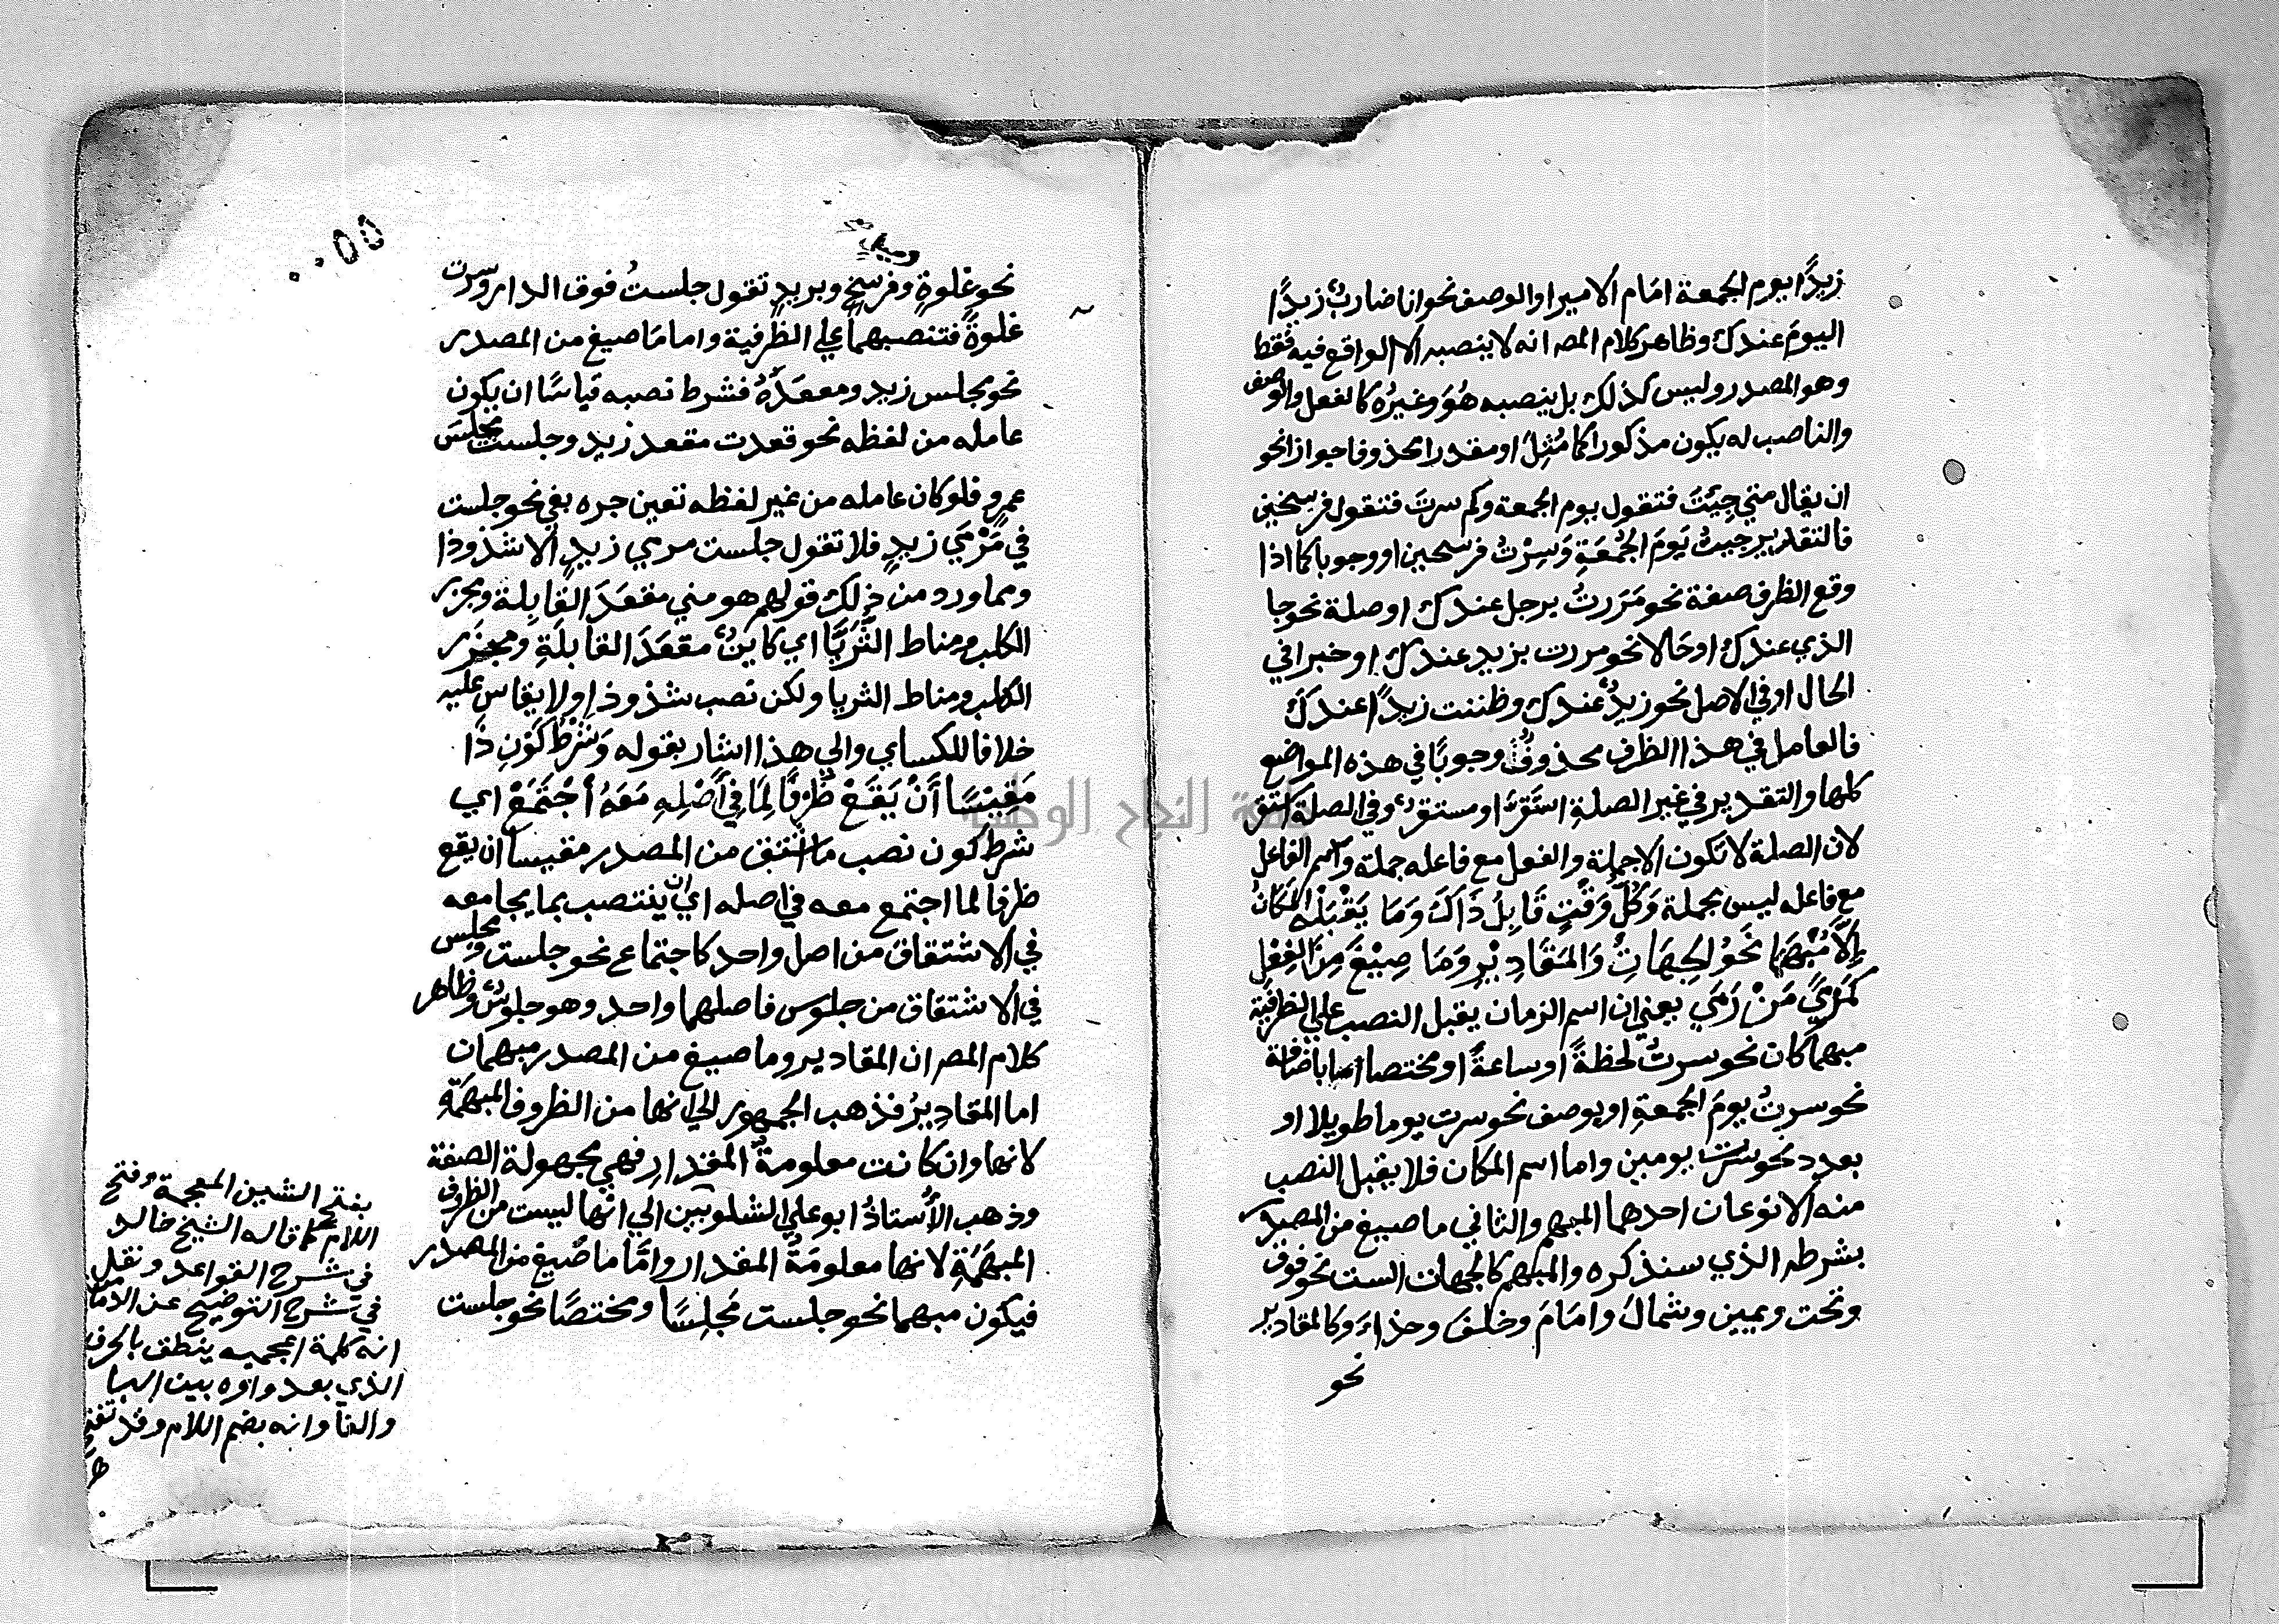 زيدًا يوم الجمعة امَام الامير او الوصف نحو انا ضاربٌ زيدًا
اليومَ عندك وظاهر كلام المصـ انه لا ينصبه الا الواقع فيه فقط
وهو المصدر وليس كذلك بل ينصبه هُوَ وغيرُه كالفعل والوصف
والناصب له يكون مذكورا كما مُثِلَ او مقدرا محذوفا جوازا نحو
ان يقال متي جِيَتَ فتقول يوم الجمعة وكم سرتَ فتقول فرسخين
فالتقدير جيتُ يَومَ الجُمُعَةِ وَسِرْتُ فرسخين او وجوبا كما اذا
وقع الظرف صفة نحو مَرَرتُ برجل عندك او صلة نحو جا
الذي عندك او حَالا نحو مررت بزيد عندك او خبرا في
الحال او في الاصل نحو زيدٌ عندك وظننت زيدًا عندكَ
فالعامل في هذا الظرف محذوفٌ وجوبًا في هذه المواضع
كلها والتقدير في غير الصلةِ استَقرَّ او مستقرٌ وفي الصلة استقر
لان الصلة لا تكون الا جملة والفعل مع فاعله جملة واسم الفاعل
مع فاعله ليس بجملة وَكُلُّ وَقْتٍ قَابِلُ ذَاكَ وَمَا يَقْبَلُهُ المَكَانُ
اِلَّا مُبْهَمَا نَحْوُ الجِهَاتِ وَالمَقَادِيْرِ وَمَا صِيْغَ مِنَ الفِعْلِ
كَمَرْمَيً مَنْ رَمَي يعني ان اسم الزمان يقبل النصب علي الظرفية
مبهما كان نحو سرتُ لحظةً او ساعةً او مختصا اما باضافة
نحو سرتُ يومَ الجمعةِ او بوصف نحو سرت يوما طويلا او
بعدد نحو سرت يومين واما اسم المكان فلا يقبل النصب
منه الا نوعان احدهما المبهم والثاني ما صيغ من المصدر
بشرطه الذي سنذكره والمبهم كالجهات الست نحو فوق
وتحت ويمين وشمالَ وامَامَ وخلفَ وحذاءَ وكالمقادير
نحو
نحو غلوةٍ وفرسخٍ وبريدٍ تقول جلستُ فوق الدار وسرت
غلوةً فتنصبهما علي الظرفية واما مَا صيغ من المصدر
نحو مجلس زيد ومقعَدَهُ فشرط نصبه قياسًا ان يكون
عامله من لفظه نحو قعدت مقعد زيد وجلست مجلسَ
عمرٍو فلو كان عامله من غير لفظه تعين جره بفي نحو جلست
في مَرْمَي زيدٍ فلا تقول جلست مرمي زيدٍ الا شذوذا
ومما ورد من ذلك قولهم هو مني مقعَدَ القابِلة ومجزر
الكلب ومناط الثُّرَيَّا اي كاينٌ مقعَدَ القابلَةِ ومجزَر
الكلب ومناط الثريا ولكن نصب شذوذا ولا يقاس عليه
خلافا للكساي والي هذا اشار بقوله وَشَرْطُ كَوْنِ ذَا
مَقِيْسًا أَنْ يَقَعْ ظَرْفًا لِمَا فِي أَصْلِهِ مَعَهُ أجْتَمَعْ اي
شرط كون نصب ما اشتق من المصدر مقيسا ان يقع
ظرفا لما اجتمع معه في اصله اي ان ينتصب بما يجامعه
في الاشتقاق من اصل واحد كاجتماع نحو جلست ومجلس
في الاشتقاق من جلوس فاصلهما واحد وهو جلوسٌ وظاهر
كلام المصـ ان المقادير وما صيغ من المصدر مبهمان
اما المقاديرُ فذهب الجمهور الي انها من الظروف المبهَمَةِ
لانها وان كانت معلومةُ المقدارِ فهي مجهولة الصفة
وذهب الأُستاذُ ابو علي الشلوبين الي انها ليست من الظروف
المبهَمَةِ لانها معلومَةُ المقدار وامَّا ما صُيغ من المصدر
فيكون مبهما نحو جلست مَجلِسًا ومختصًا نحو جلست
بفتح الشين المعجمة وفتح
اللام كما قاله الشيخ خالد
في شرح القواعد ونقل
في شرح التوضيح عن
انه كلمة اعجميه ينطق بالحرف
الذي بعد واوه بين البا
والفا وانه بضم اللام وقد تفتح
جامعة النجاح الوطنية